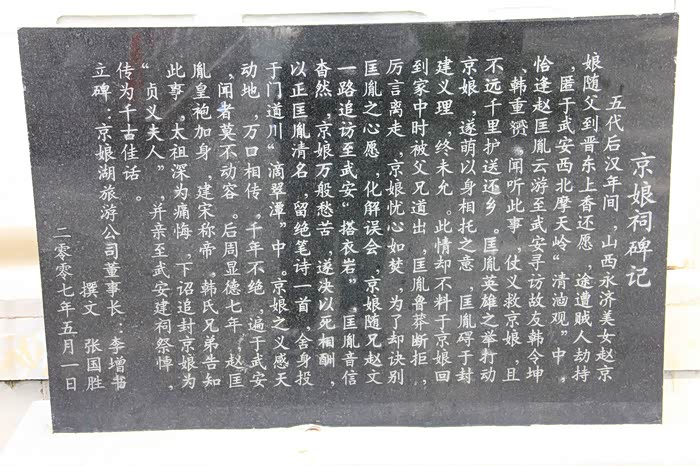 京娘祠碑记
五代后汉年间，山西永济美女赵京
娘随父到晋东上香还愿，途遭贼人劫持
，匿于武安西北摩天岭“清油观”中，
恰逢赵匡胤云游至武安寻访故友韩令坤
、韩重赟，闻听此事，仗义救京娘，且
不远千里护送还乡。匡胤英雄之举打动
京娘，遂萌以身相托之意，匡胤碍于封
建义理，终未允。此情却不料于京娘回
到家中时被父兄道出，匡胤鲁莽断拒，
厉言离走，京娘忧心如焚，为了却诀别
匡胤之心愿，化解误会，京娘随兄赵文
一路追访至武安“搭衣岩”，匡胤音信
杳然，京娘万般愁苦，遂决以死相酬，
以正匡胤清名，留绝笔诗一首，舍身投
于门道川“滴翠潭”中。京娘之义感天
动地，万口相传，千年不绝，遍于武安
，闻者莫不动容。后周显德七年，赵匡
胤皇袍加身，建宋称帝，韩氏兄弟告知
此事，太祖深为痛悔，下诏追封京娘为
“贞义夫人”，并亲至武安建祠祭悼，
传为千古佳话。
立碑：京娘湖旅游公司董事长：李增书
撰文 张国胜
二零零七年五月一日